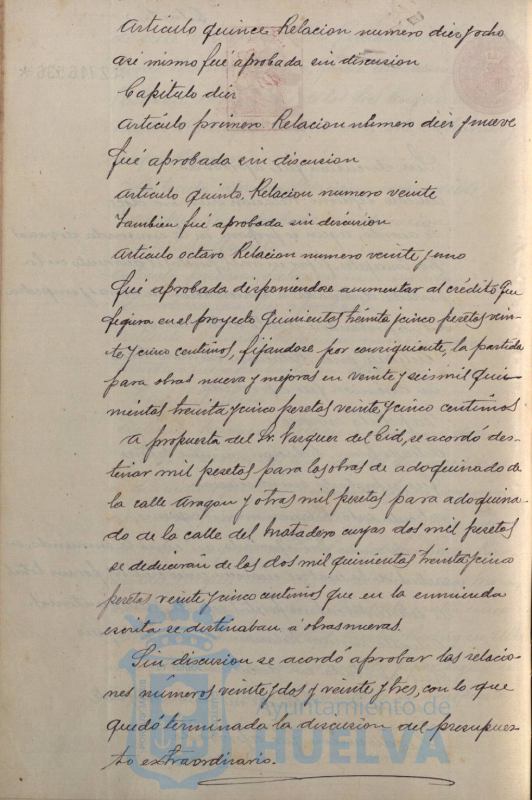 Artículo quince Relacion numero diez y ocho
asi mismo fué aprobada sin discusion
Capítulo diez
Artículo primero Relacion número diez y nueve
fué aprobada sin discusion
Artículo quinto, Relacion numero veinte
tambien fué aprobada sin discusion
Artículo octavo Relacion numero veinte y uno
fué aprobada disponiéndose aumentar al crédito que
figura en el proyecto quinientas treinta y cinco pesetas vein-
te y cinco centimos, fijandose por consiguiente, la partida
para obras nueva y mejoras en veinte y seis mil qui-
nientas treinta y cinco pesetas veinte y cinco centimos
A propuesta del Sr. Vazquez del Cid, se acordó des-
tinar mil pesetas para las obras de adoquinado de
la calle Aragon y otras mil pesetas para adoquina-
do de la calle del Matadero cuyas dos mil pesetas
se deducirán de las dos mil quinientas treinta y cinco
pesetas veinte y cinco centimos que en la enmienda
escrita se destinaban á obras nuevas.
Sin discusion se acordó aprobar las relacio-
nes números veinte y dos y veinte y tres, con lo que
quedó terminada la discusion del presupues-
to extraordinario.
Ayuntamiento de
HUELVA